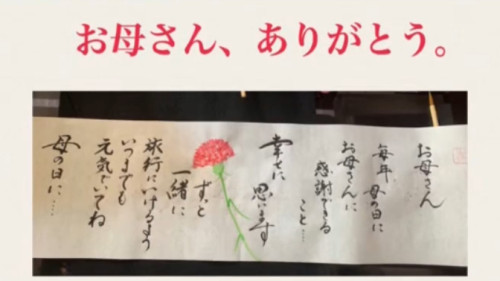 お母さん、ありがとう。
お母さん
毎年 母の日に
お母さんに
感謝できる
こと…
幸せに
思います
ずっと
一緒に
旅行にいけるよう
いつまでも
元気でいてね
母の日に…